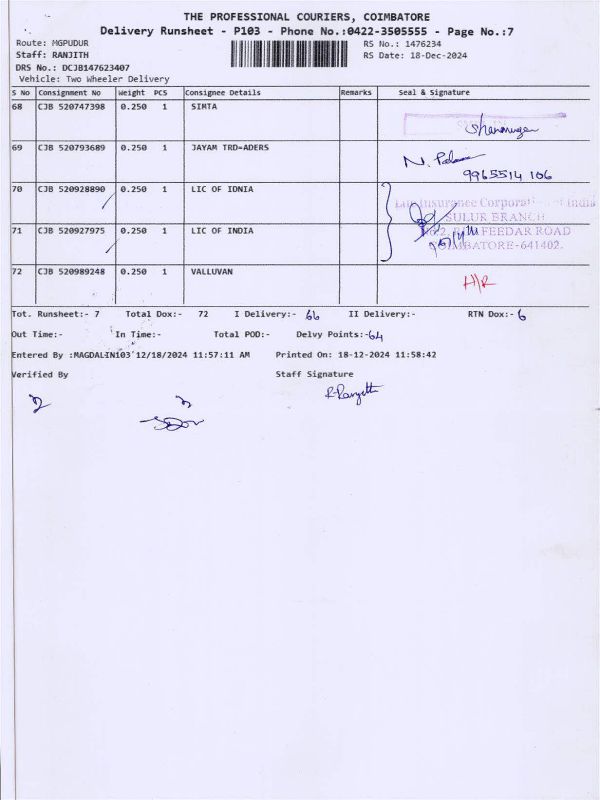 THE PROFESSIONAL COURIERS, COIMBATORE
Delivery Runsheet - P103 - Phone No.:0422-3505555 - Page No.:7
Route: MGPUDUR
RS No.: 1476234
Staff: RANJITH
RS Date: 18-Dec-2024
DRS No.: DCJB147623407
Vehicle: Two Wheeler Delivery
S No Consignment No Weight PCS Consignee Details Remarks Seal & Signature
68 CJB 520747398 0.250 1 SIMTA
69 CJB 520793689 0.250 1 JAYAM TRD=ADERS
9965514 106
70 CJB 520928890 0.250 1 LIC OF IDNIA
Life Insurance Corporation of India
SULUR BRANCH
71 CJB 520927975 0.250 1 LIC OF INDIA
FEEDAR ROAD
COIMBATORE-641402.
72 CJB 520989248 0.250 1 VALLUVAN H/R
Tot. Runsheet:- 7 Total Dox:- 72 I Delivery:- 66 II Delivery:- RTN Dox:- 6
Out Time:- In Time:- Total POD:- Delvy Points:- 64
Entered By :MAGDALIN103 12/18/2024 11:57:11 AM Printed On: 18-12-2024 11:58:42
Verified By Staff Signature